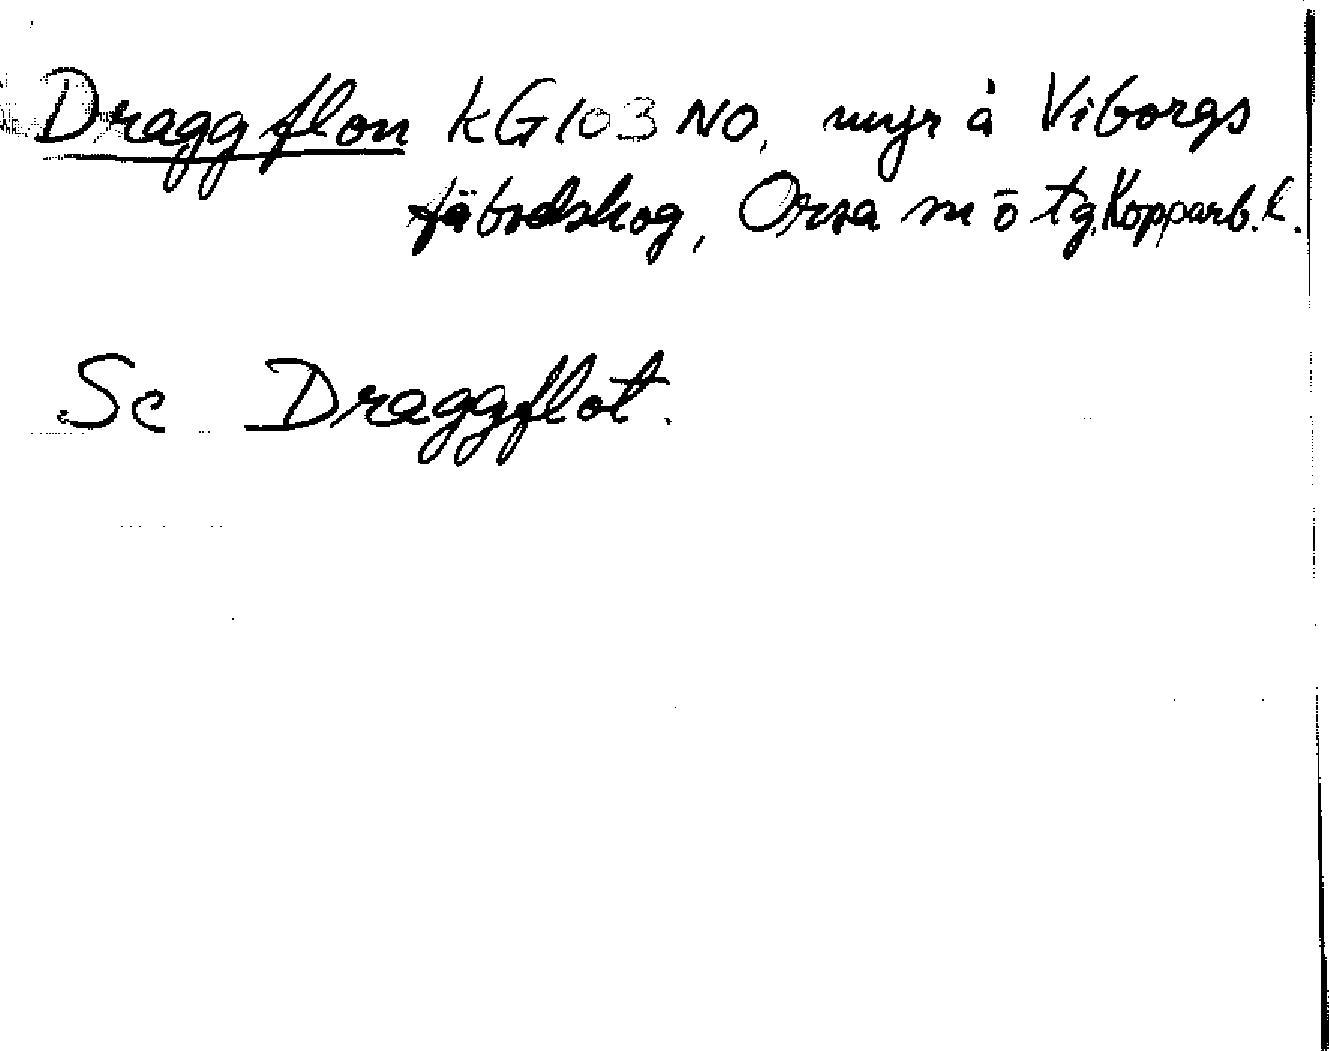 Draggflon KG103 NO, myr å Viborgs
fäbodskog, Orsa sn ö tg. Kopparb. l.
Se Draggflot.